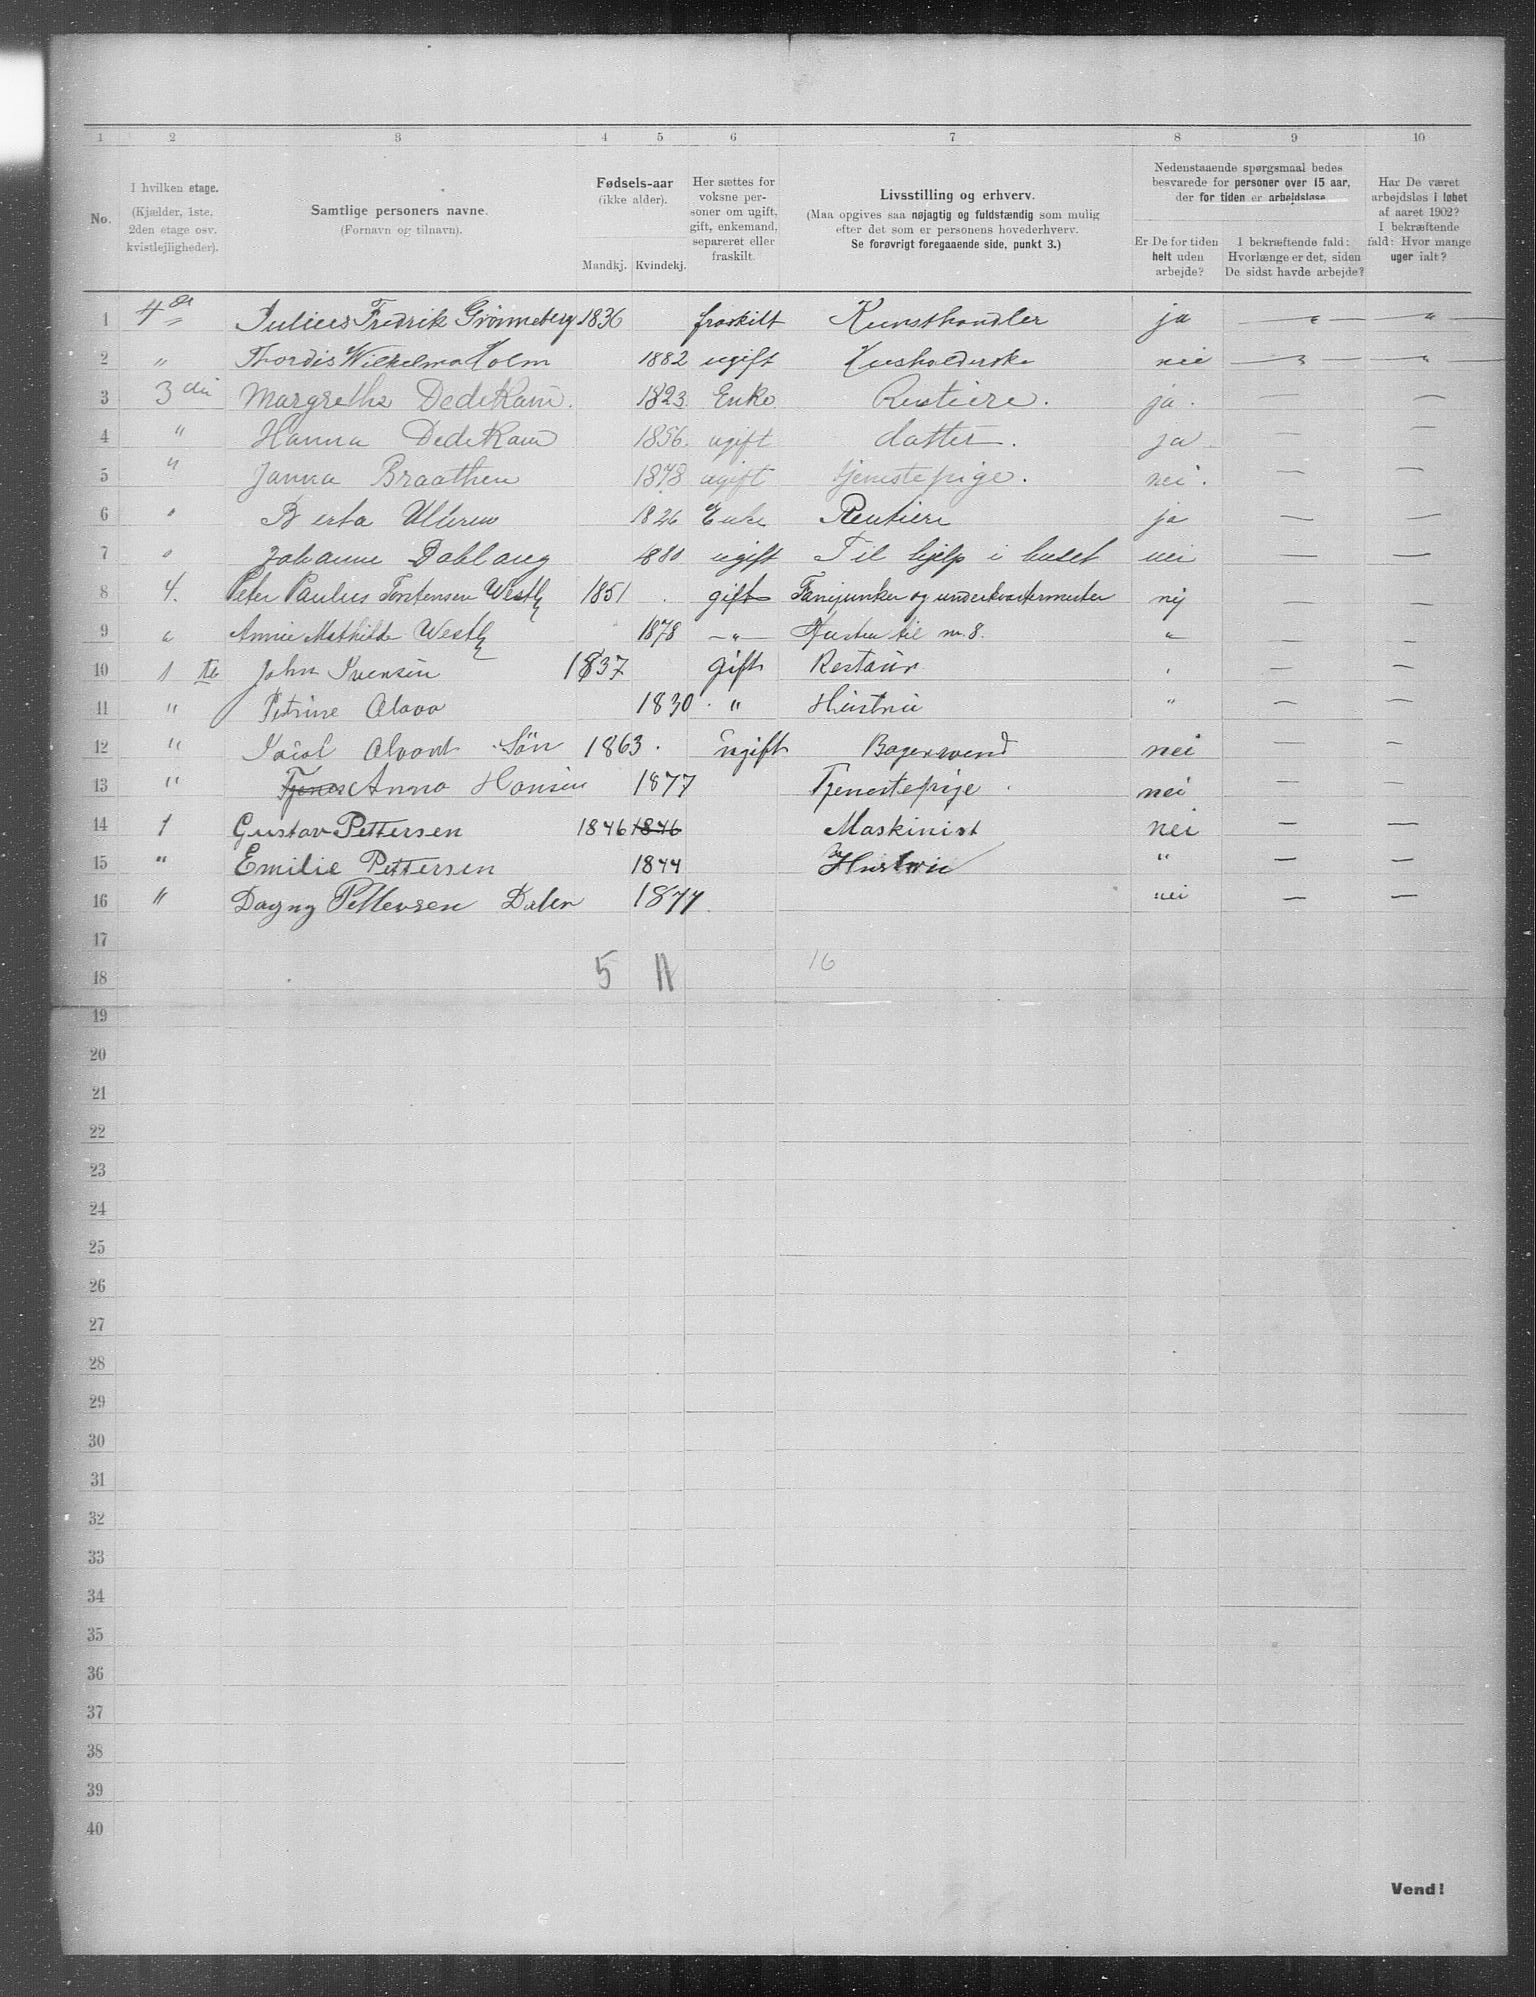 1 2 3 4 5 6 7 8 9 10
No.
I hvilken etage.
(Kjælder, 1ste,
2den etage osv.
kvistlejligheder).
Samtlige personers navne.
(Fornavn og tilnavn).
Fødsels-aar
(ikke alder).
Mandkj. Kvindekj.
Her sættes for
voksne per-
soner om ugift,
gift, enkemand,
separeret eller
fraskilt.
Livsstilling og erhverv.
(Maa opgives saa nøjagtig og fuldstændig som mulig
efter det som er personens hovederhverv.
Se forøvrigt foregaaende side, punkt 3.)
Nedenstaaende spørgsmaal bedes
besvarede for personer over 15 aar,
der for tiden er arbejdsløse.
Er De for tiden
helt uden
arbejde?
I bekræftende fald:
Hvorlænge er det, siden
De sidst havde arbejde?
Har De været
arbejdsløs i løbet
af aaret 1902?
I bekræftende
fald: Hvor mange
uger ialt?
1 4de Julius Fredrik Grønneberg 1836 fraskilt Kunsthandler ja — " — — " —
2 " Thordis Wilhelma Holm 1882 ugift Husholderske nei — " — — " —
3 3die Margrethe Dedekam. 1823 Enke Rentiere. ja. — —
4 " Hanna Dedekam 1856 ugift datter. ja — —
5 " Janna Braathen 1878 ugift tjenestepige. nei. — —
6 " Berta Uluren 1826 Enke Rentiere ja — —
7 " Johanne Dahlaug 1880 ugift Til hjelp i huset nei — —
8 4. Peter Paulus Torstensen Westly 1851 gift Fanejunker og underkvartermester nej — —
9 " Annie Mathilde Westly 1878 — " — Hustru til nr. 8. " — —
10 1ste John Svensen 1837 gift Restaur " — —
11 " Petrine 1830 " Hustrue " — —
12 " Søn 1863 ugift Bagersvend nei — —
13 " Tjenes Anna Hansen 1877 Tjenestepige nei — —
14 1 Gustav Pettersen 1846 1846 Maskinist nei — —
15 " Emilie Pettersen 1844 Hustrue " — —
16 " Dagny Pettersen Dater 1877 nei — —
17
18 5 11 16
19
20
21
22
23
24
25
26
27
28
29
30
31
32
33
34
35
36
37
38
39
40
Vend!